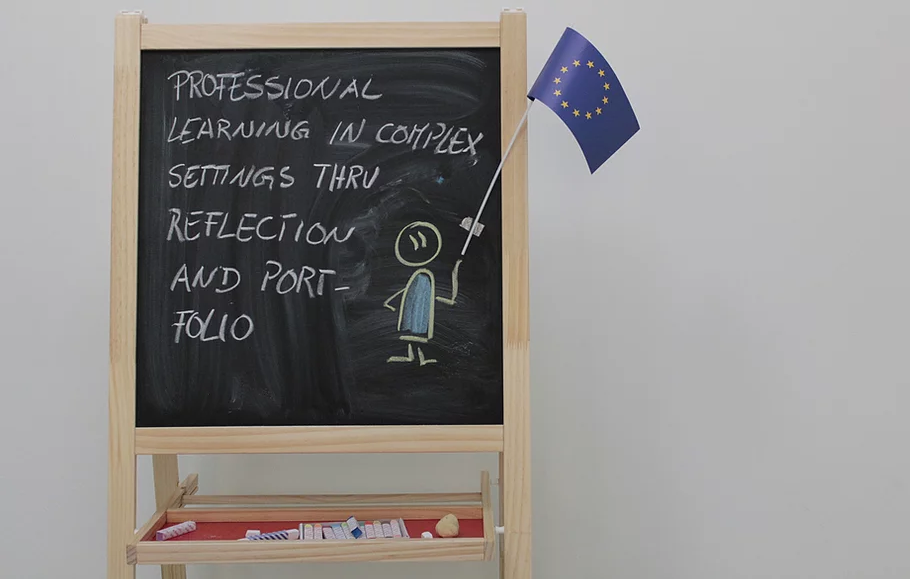 PROFESSIONAL
LEARNING IN COMPLEX
SETTINGS THRU
REFLECTION
AND PORT-
FOLIO